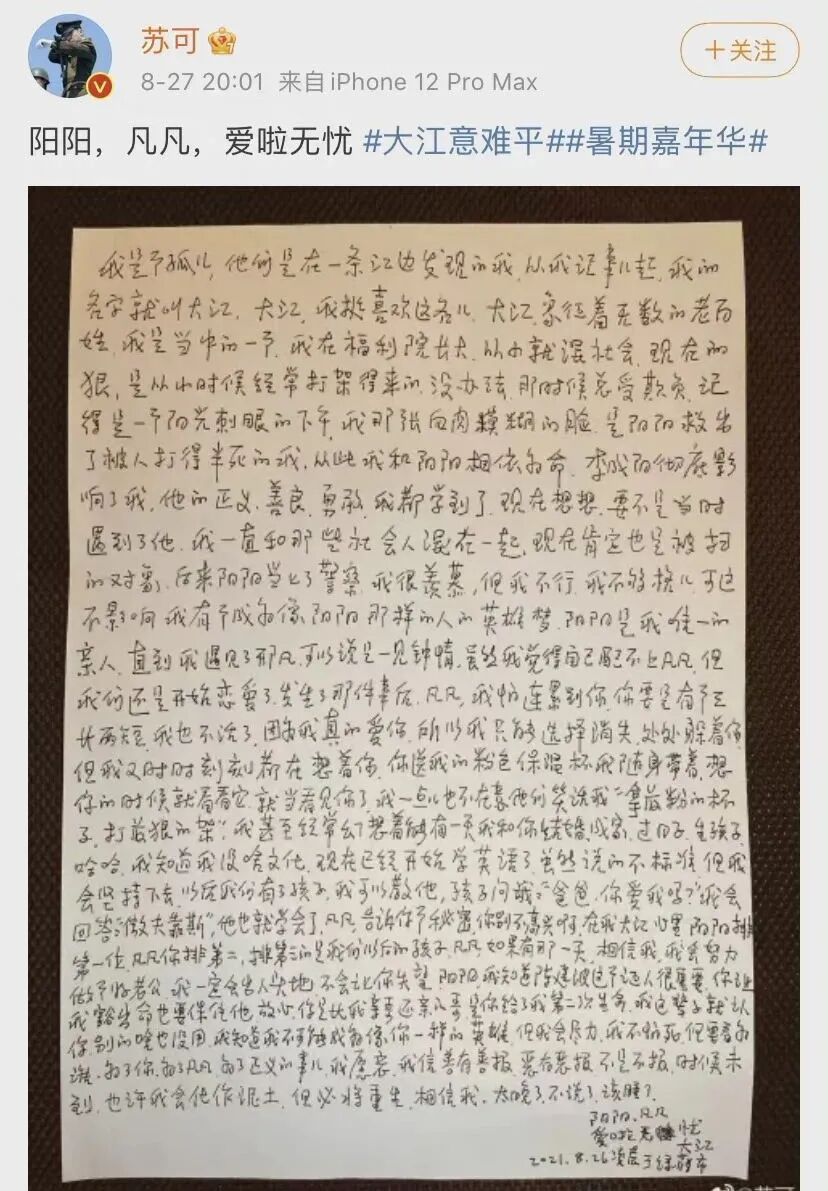 苏可
8-27 20:01 来自 iPhone 12 Pro Max
+关注
阳阳，凡凡，爱啦无忧 #大江意难平##暑期嘉年华#
我是个孤儿，他们是在一条江边发现的我，从我记事儿起，我的
名字就叫大江，大江，我挺喜欢这名儿，大江，象征着无数的老百
姓，我是当中的一个，我在福利院长大，从小就混社会，现在的
狠，是从小时候经常打架得来的，没办法，那时候总受欺负，记
得是一个阳光刺眼的下午，我那张血肉模糊的脸，是阳阳救出
了被人打得半死的我，从此我和阳阳相依为命，李成阳彻底影
响了我，他的正义、善良、勇敢，我都学到了，现在想想，要不是当时
遇到了他，我一直和那些社会人混在一起，现在肯定也是被扫
的对象，后来阳阳当上了警察，我很羡慕，但我不行，我不够格儿，可这
不影响我有个成为像阳阳那样的人的英雄梦，阳阳是我唯一的
亲人，直到我遇见了邢凡，可以说是一见钟情，虽然我觉得自己配不上凡凡，但
我们还是开始恋爱了，发生了那件事后，凡凡，我怕连累到你，你要是有个三
长两短，我也不活了，因为我真的爱你，所以我只能选择消失，处处躲着你
但我又时时刻刻都在想着你，你送我的粉色保温杯我随身带着，想
你的时候就看看它，就当看见你了，我一点儿也不在意他们笑话我"拿最粉的杯
子，打最狠的架"，我甚至经常幻想着能有一天我和你结婚，成家，过日子，生孩子，
哈哈，我知道我没啥文化，现在已经开始学英语了，虽然说的不标准，但我
会坚持下去，以后我们有了孩子，我可以教他，孩子问我："爸爸，你爱我吗？"我会
回答："微夫靠斯"，他也就学会了，凡凡，告诉你个秘密，你别不高兴啊，在我大江心里，阳阳排
第一位，凡凡你排第二，排第三的是我们以后的孩子，凡凡，如果有那一天，相信我，我会努力
做个好老公，我一定会出人头地，不会让你失望，阳阳，我知道陈建波这个证人很重要，你让
我豁出命也要保住他，放心，你是比我亲哥还亲的哥，是你给了我第二次生命，我这辈子就认
你，别的啥也没用，我知道我不可能成为像你一样的英雄，但我会尽力，我不怕死，但要看为
谁，为了你，为了凡凡，为了正义的事儿，我愿意，我信善有善报，恶有恶报，不是不报，时候未
到，也许我会化作泥土，但必将重生，相信我，太晚了，不说了，该睡了
阳阳、凡凡
爱啦无忧
大江
2021.8.26凌晨于绿藤市